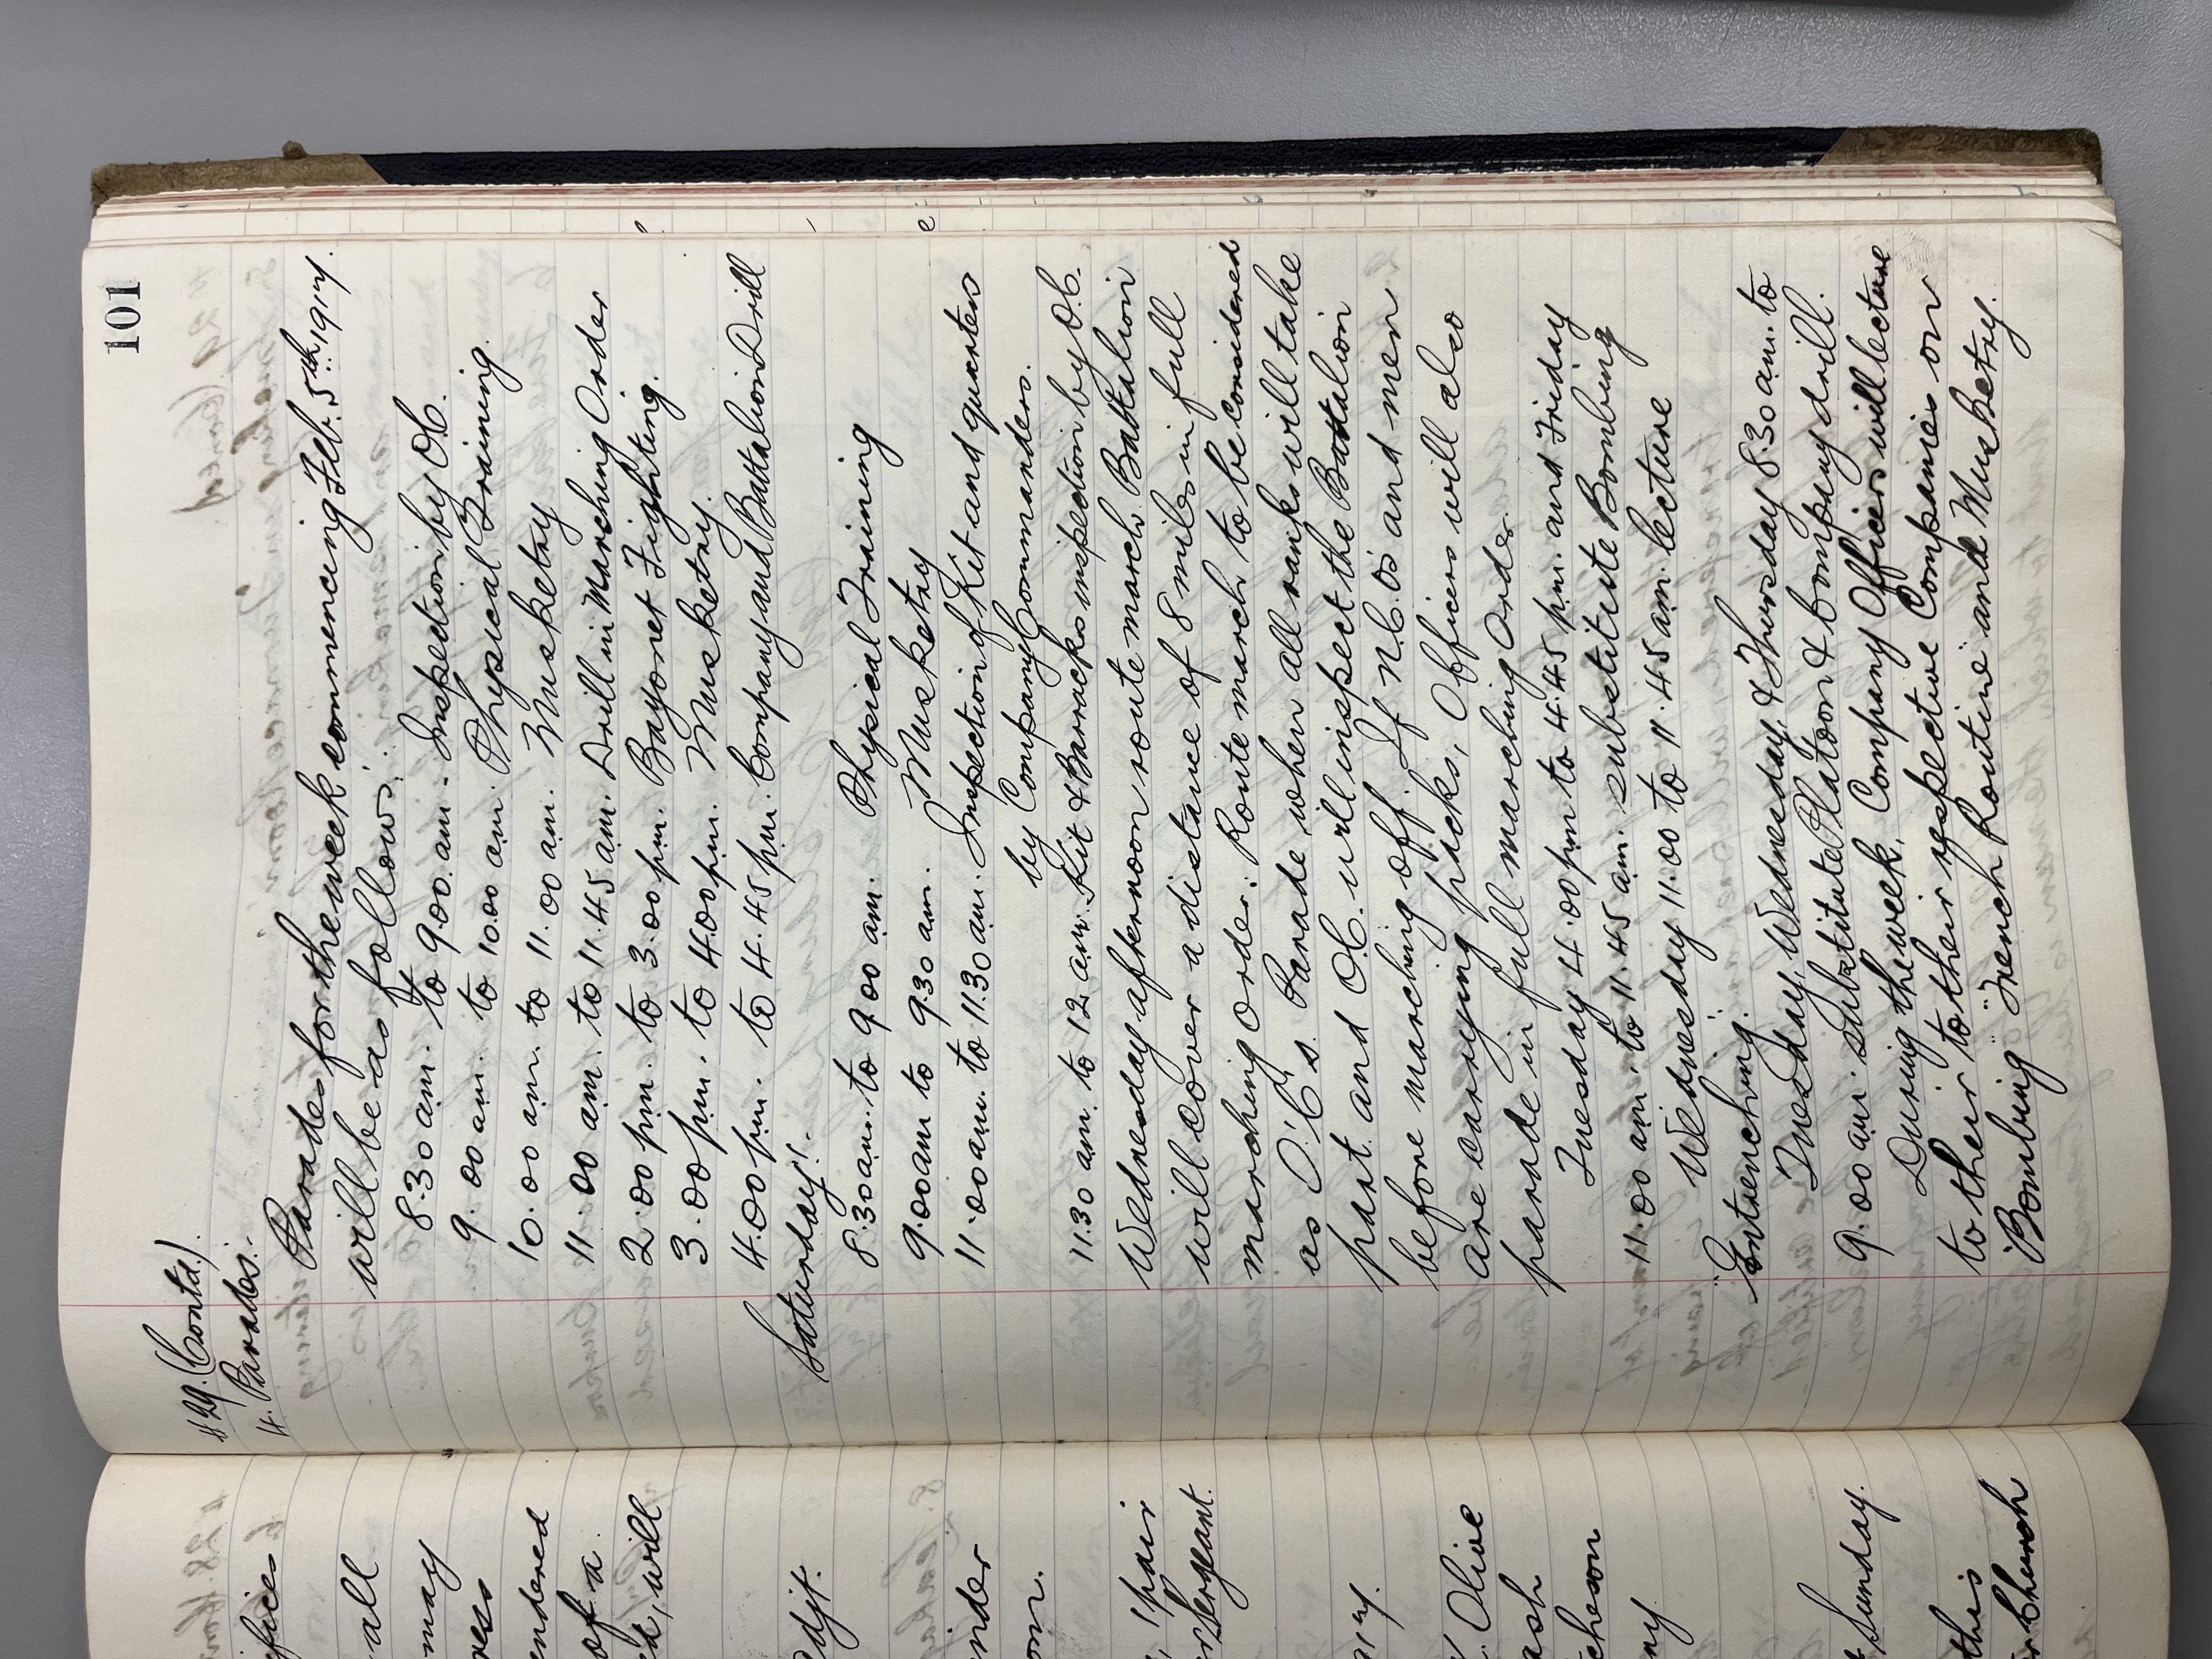 101
# 29. (Contd.)
4. Parades:-
Parades for the week commencing Feb. 5th. 1917.
will be as follows:-
8.30 am. to 9.00. am. Inspection by O.C.
9.00 am. to 10.00 am. Physical Training.
10.00 am. to 11.00 am. Musketry
11.00 am. to 11.45 am. Drill in Marching Order
2.00 pm. to 3.00 pm. Bayonet Fighting.
3.00 pm. to 4.00 pm. Musketry.
4.00 pm. to 4.45 pm. Company and Battalion Drill
Saturday:-
8.30 am. to 9.00 am. Physical Training
9.00 am to 9.30 am. Musketry
11.00 am. to 11.30 am. Inspection of Kit and quarters
by Company Commanders.
11.30 am. to 12 am. Kit & Barracks inspection by O.C.
Wednesday afternoon route march. Battalion
will cover a distance of 8 miles in full
marching order. Route march to be considered
as O.C's. Parade when all ranks will take
part and O.C. will inspect the Battalion
before marching off. If N.C.O's and men
are carrying packs, Officers will also
parade in full marching Order.
Tuesday 4.00 pm to 4.45 pm. and Friday
11.00 am. to 11.45 am. substitute Bombing
Wednesday 11.00 to 11.45 am. lecture
"Entrenching."
Tuesday, Wednesday, & Thursday 8.30 am. to
9.00 am. substitute Platoon & Company drill.
During the week, Company Officers will lecture
to their to their respective Companies on
"Bombing" "Trench Routine and Musketry.
fices
all
may
ress
endered
of a
, will
Adjt.
nder
on.
, 'phair
Sergeant.
ary.
Olive
ash
cheson
ny
Sunday.
this
Church